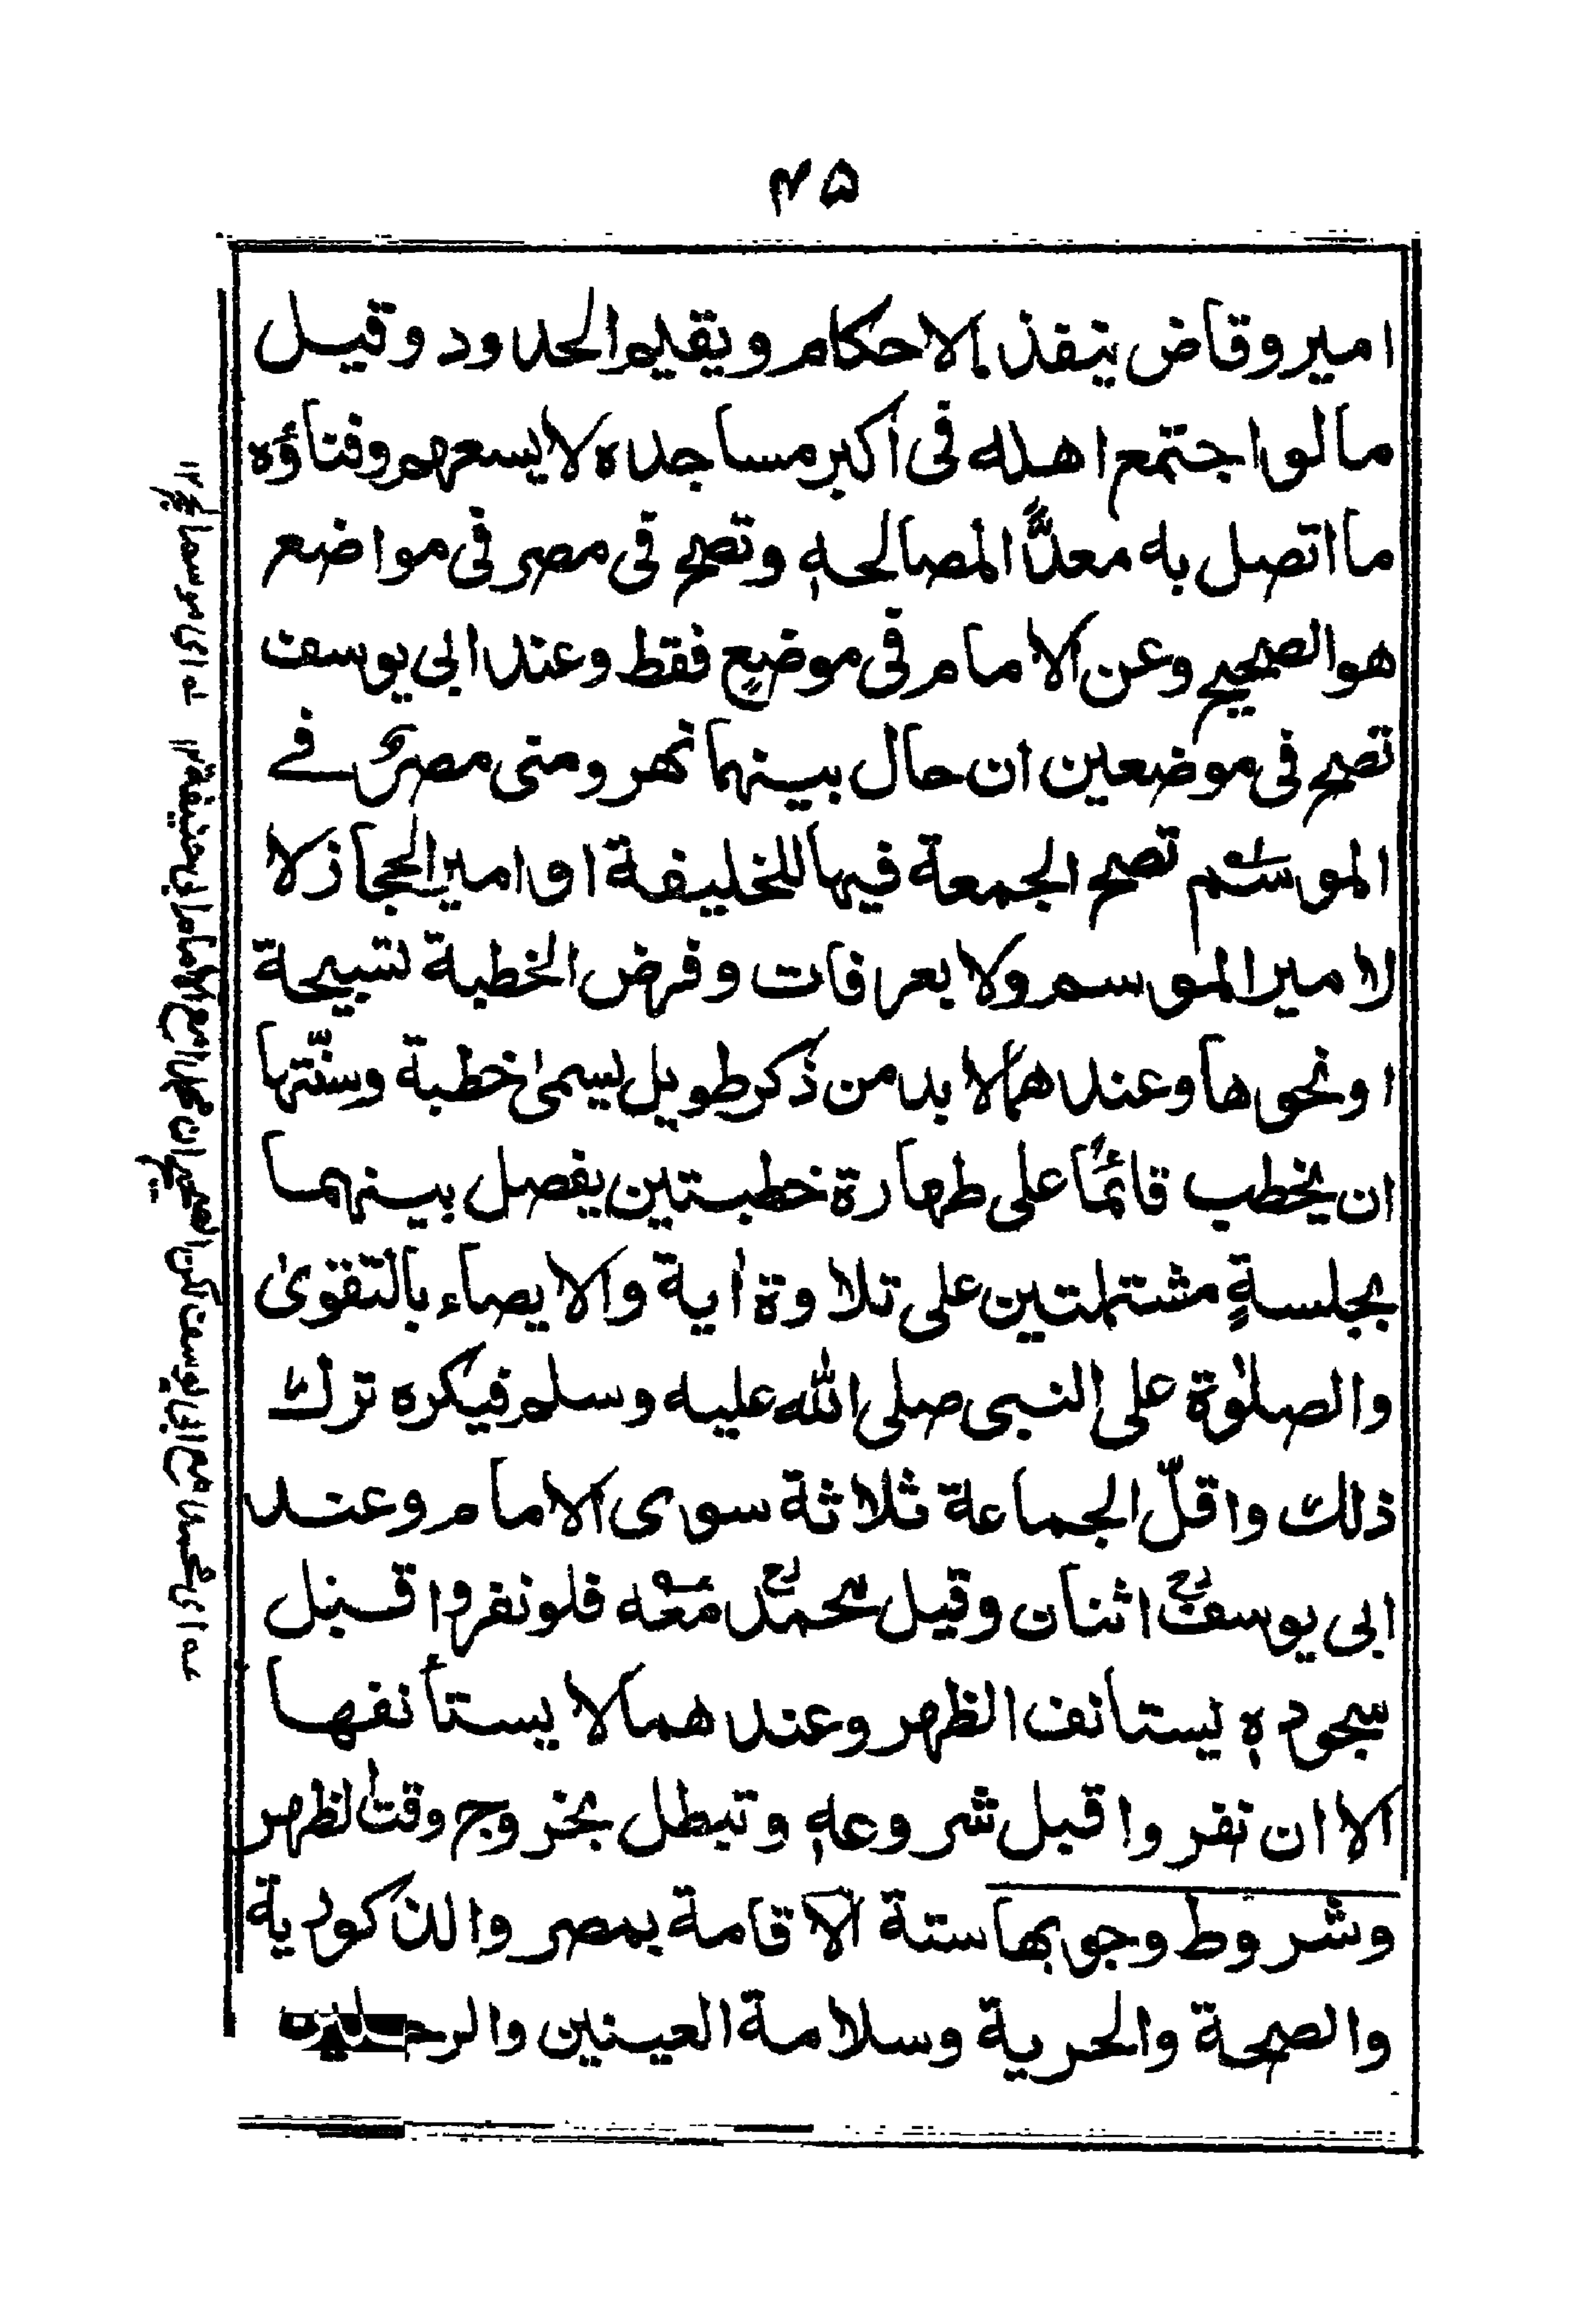 ۴۵
امير وقاض ينفذ الاحكام ويقيم الحدود وقيل
مالو اجتمع اهله فى اكبر مساجده لا يسعهم وفناؤه
ما اتصل به معدًّا لمصالحه وتصح فى مصر فى مواضع
هو الصحيح وعن الامام فى موضعٍ فقط وعند ابى يوسف
تصح فى موضعين ان حال بينهما نهر ومنى مصرٌ فے
الموسم تصح الجمعة فيها للخليفة او امير الحجاز لا
لامير الموسم ولا بعرفات وفرض الخطبة تسبيحة
او نحوها وعندهما لا بد من ذكر طويل يسمىٰ خطبة وسنّتها
ان يخطب قائمًا على طهارة خطبتين يفصل بينهما
بجلسةٍ مشتملتين على تلاوة اٰية والايصاء بالتقوىٰ
والصلوٰة على النبى صلى الله عليه وسلم فيكره ترك
ذلك واقلّ الجماعة ثلاثة سوى الامام وعند
ابى يوسفؒ اثنان وقيل محمدؒ معه فلو نفروا قبل
سجوده يستانف الظهر وعندهما لا يستأنفها
الا ان نفروا قبل شروعه وتبطل بخروج وقت الظهر
وشروط وجوبها ستة الاقامة بمصر والذكورية
والصحة والحرية وسلامة العينين والرجلين